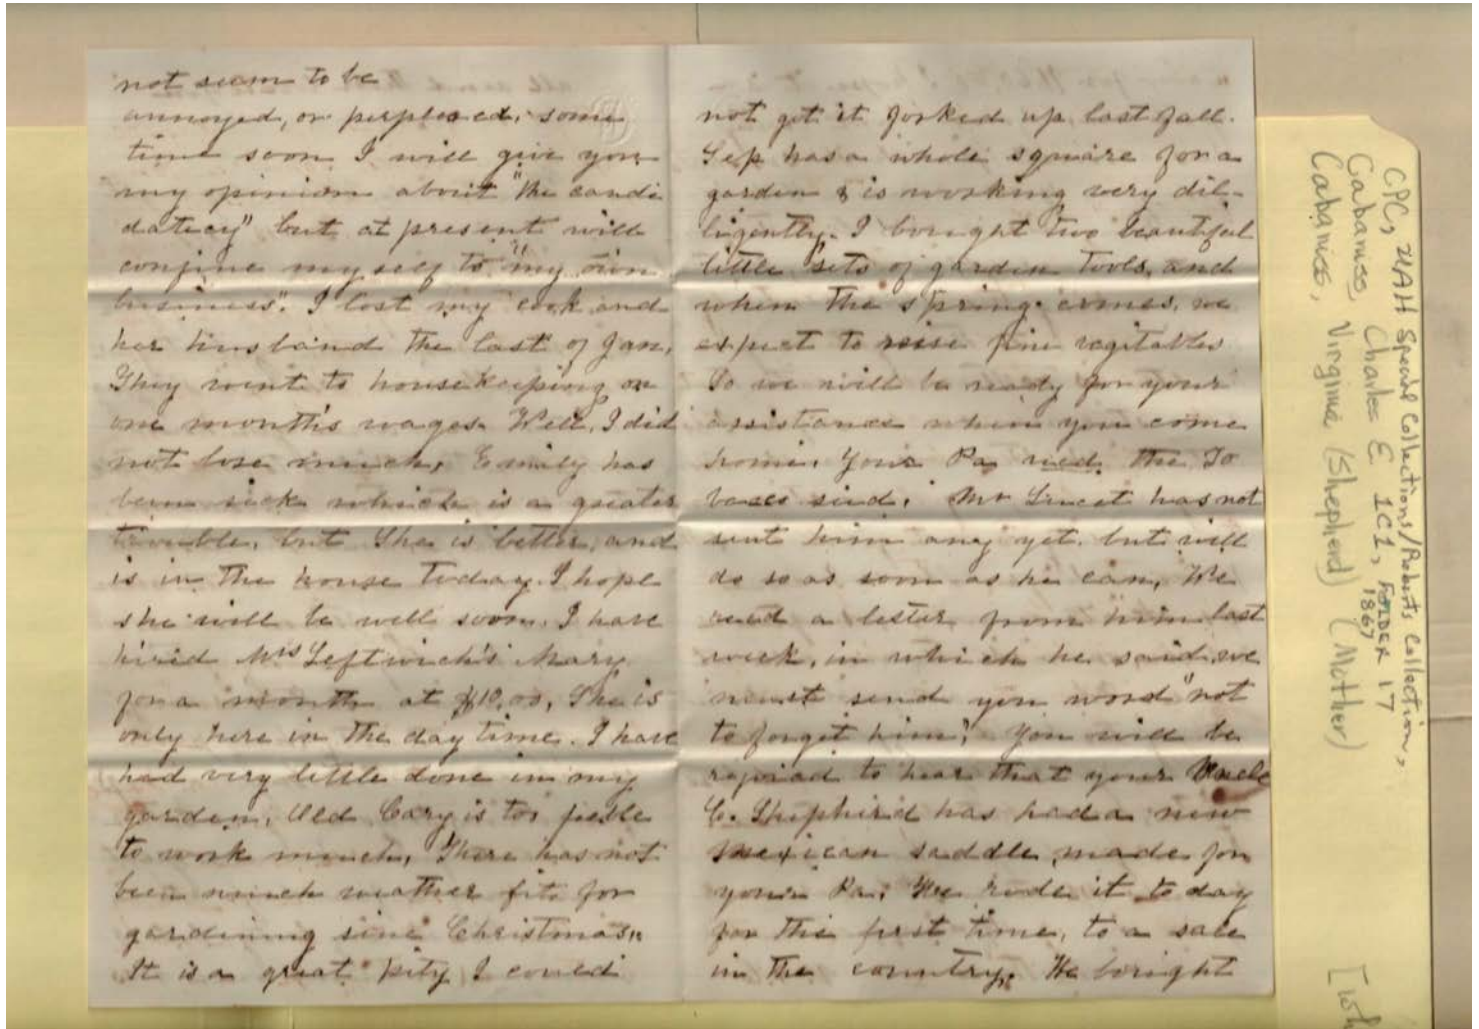 not seem to be
annoyed, or perplexed, some
time soon I will give you
my opinion about "the candi
datecy" but at present will
confine myself to "my own
business". I lost my cook and
her husband the last of Jan,
They went to housekeeping on
one month's wages. Well, I did
not lose much, Emily has
been sick which is a greater
trouble, but She is better, and
is in the house today. I hope
she will be well soon. I have
hired Mrs Leftwich's Mary
for a month at $10,00, She is
only here in the day time. I have
had very little done in my
garden, Old Cary is too feeble
to work much, There has not
been much weather fit for
gardining sine Christmas,
It is a great pity I could
not get it forked up last fall.
Sep has a whole square for a
garden & is working very dil-
ligently. I bought two beautiful
little sets of garden tools, and
when the spring comes, we
expect to raise fine vegitables
So we will be ready for your
assistance when you come
home. Your Pa recd. the To
bacco seed. Mr has not
sent him any yet, but will
do so as soon as he can, We
recd a letter from him last
week, in which he said, we
must send you word "not
to forget him", You will be
to hear that your Uncle
C. Shepherd has had a new
Mexican saddle made for
your Pa. He rode it to day
for the first time, to a sale
in the country. He bought
CPC, UAH Special Collections/Roberts Collection,
Cabaniss, Charles E. 1C1, FOLDER 17
1867
Cabaniss, Virginie (Shepherd) (Mother)